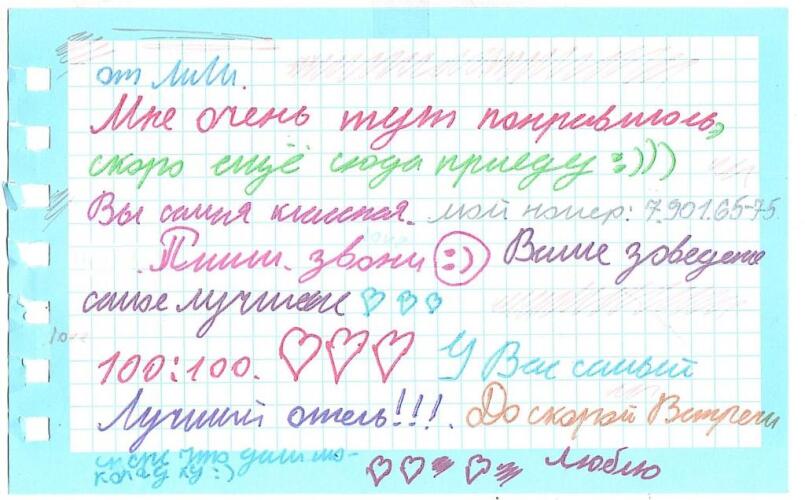 от ЛиЛи.
Мне очень тут понравилось,
скоро ещё сюда приеду :)))
Вы самая классная. мой номер: 7.901.65-75
Пиши. звони :) Ваше заведение
самое лучшее
100:100. У Вас самый
Лучший отель!!!. До скорой Встречи
что дали шо-
коладку :) Люблю